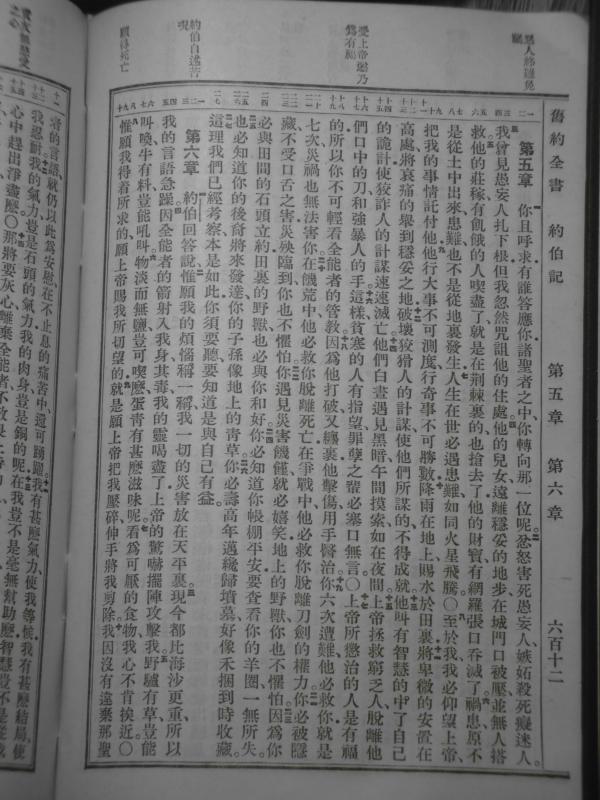 舊約全書　約伯記　第五章　第六章　六百十二
第五章　你且呼求有誰答應你諸聖者之中你轉向那一位呢忿怒害死愚妄人嫉妬殺死癡迷人。
我曾見愚妄人扎下根但我忽然咒詛他的住處他的兒女遠離穩妥的地步在城門口被壓並無人搭
救他的莊稼有飢餓的人喫盡了就是在荆棘裏的也搶去了他的財寶有網羅張口吞滅了禍患原不
是從土中出來患難也不是從地裏發生人生在世必遇患難如同火星飛騰〇至於我我必仰望上帝、
把我的事情託付他他行大事不可測度行奇事不可勝數降雨在地上賜水於田裏將卑微的安置在
高處將哀痛的舉到穩妥之地破壞狡猾人的計謀使他們所謀的不得成就他叫有智慧的中了自己
的詭計使狡詐人的計謀速速滅亡他們白晝遇見黑暗午間摸索如在夜間上帝拯救窮乏人脫離他
們口中的刀和強暴人的手這樣貧寒的人有指望罪孽之輩必塞口無言〇上帝所懲治的人是有福
的所以你不可輕看全能者的管教因爲他打破又纏裹他擊傷用手醫治你六次遭難他必救你就是
七次災禍也無法害你在饑荒中他必救你脫離死亡在爭戰中他必救你脫離刀劍的權力你必被隱
藏不受口舌之害災殃臨到你也不懼怕你遇見災害饑饉就必嬉笑地上的野獸你也不懼怕因爲你
必與田間的石頭立約田裏的野獸也必與你和好你必知道你帳棚平安要查看你的羊圈一無所失。
也必知道你的後裔將來發達你的子孫像地上的青草你必壽高年邁纔歸墳墓好像禾捆到時收藏。
這理我們已經考察本是如此你須要聽要知道是與自己有益。
第六章　約伯回答說惟願我的煩惱稱一稱我一切的災害放在天平裏現今都比海沙更重所以
我的言語急躁因全能者的箭射入我身其毒我的靈喝盡了上帝的驚嚇擺陣攻擊我野驢有草豈能
叫喚牛有料豈能吼叫物淡而無鹽豈可喫麽蛋青有甚麽滋味呢看爲可厭的食物我心不肯挨近〇
惟願我得着所求的願上帝賜我所切望的就是願上帝把我壓碎伸手將我剪除我因沒有違棄那聖
者的言語就仍以此爲安慰在不止息的痛苦中還可踴躍我有甚麽氣力使我等候我有甚麽結局使
我忍耐我的氣力豈是石頭的氣力我的肉身豈是銅的呢在我豈不是毫無幫助麽智慧豈不是從我
心中趕出淨盡麽〇那將要灰心離棄全能者
愛上帝懲乃爲有福
約伯自述苦況
願得死亡